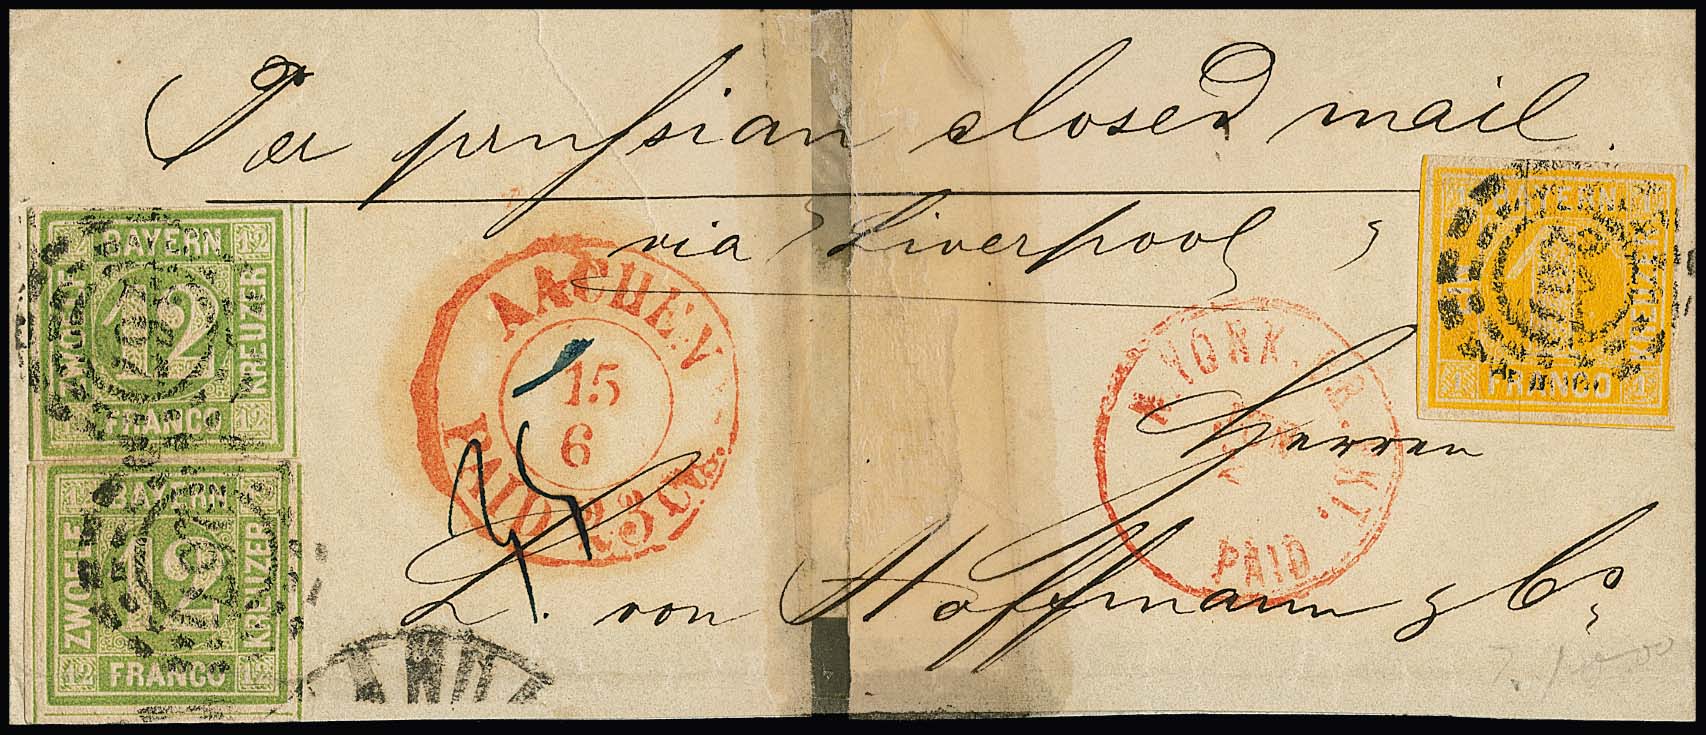 Per prussian closed mail
via Liverpool
12 BAYERN 12
ZWOELF
12
KREUZER
FRANCO
12 BAYERN 12
ZWOELF
12
KREUZER
12 FRANCO 12
AACHEN
15
6
PAID 25
N. YORK BR. PKT.
PAID
1 BAYERN 1
EIN
1
KREUZER
1 FRANCO 1
Herren
L. von Hoffmann & Co